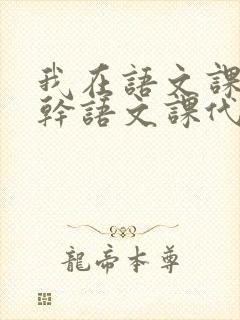 我在語文課
幹語文課代
龍帝本尊